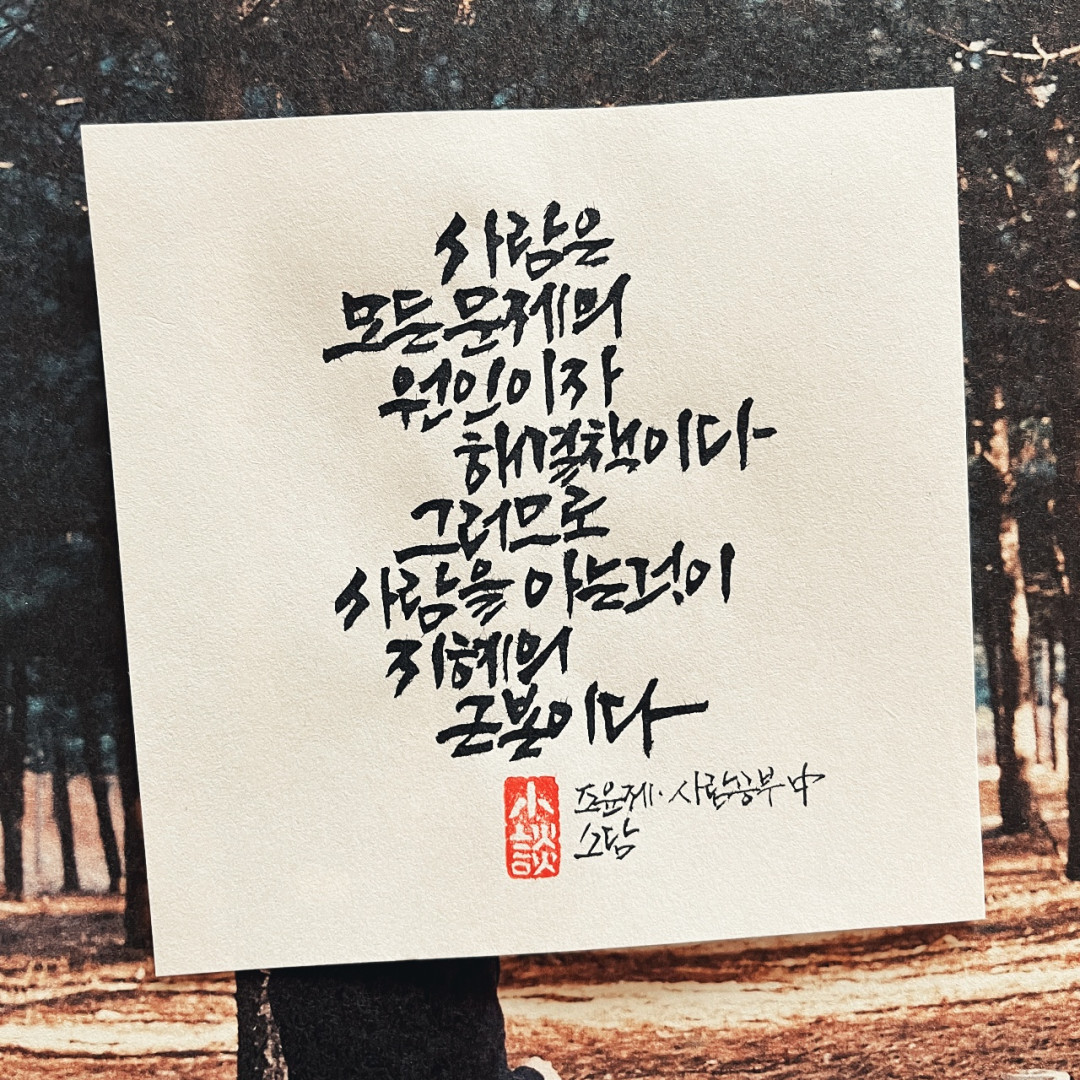 사람은
모든 문제의
원인이자
해결책이다
그러므로
사람을 아는 것이
지혜의
근본이다
조윤제·사람공부 中
소담
小談